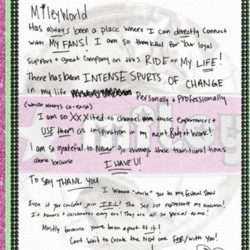 MileyWorld
Has always been a place where I can directly connect
with MY FANS! I am so thankful for your loyal
Support & great company on this RIDE of MY LIFE!
There has been INTENSE SPURTS OF CHANGE
in my life Personally & Professionally
(which always co-exist)
I am so XXXited to channel these experiences &
USE them as inspiration in my next Body of Work!
I am so grateful to Never go through these transitional times
alone because I HAVE U!
To SAY THANK YOU
I wanna "invite" you to my festival show
Even if you couldn't join I.R.L! The set list represents my evolution!
It honors & celebrates every era! They are all so special to me!
Mostly because you've been a part of it!
Can't wait to create the next one FOR/with you!